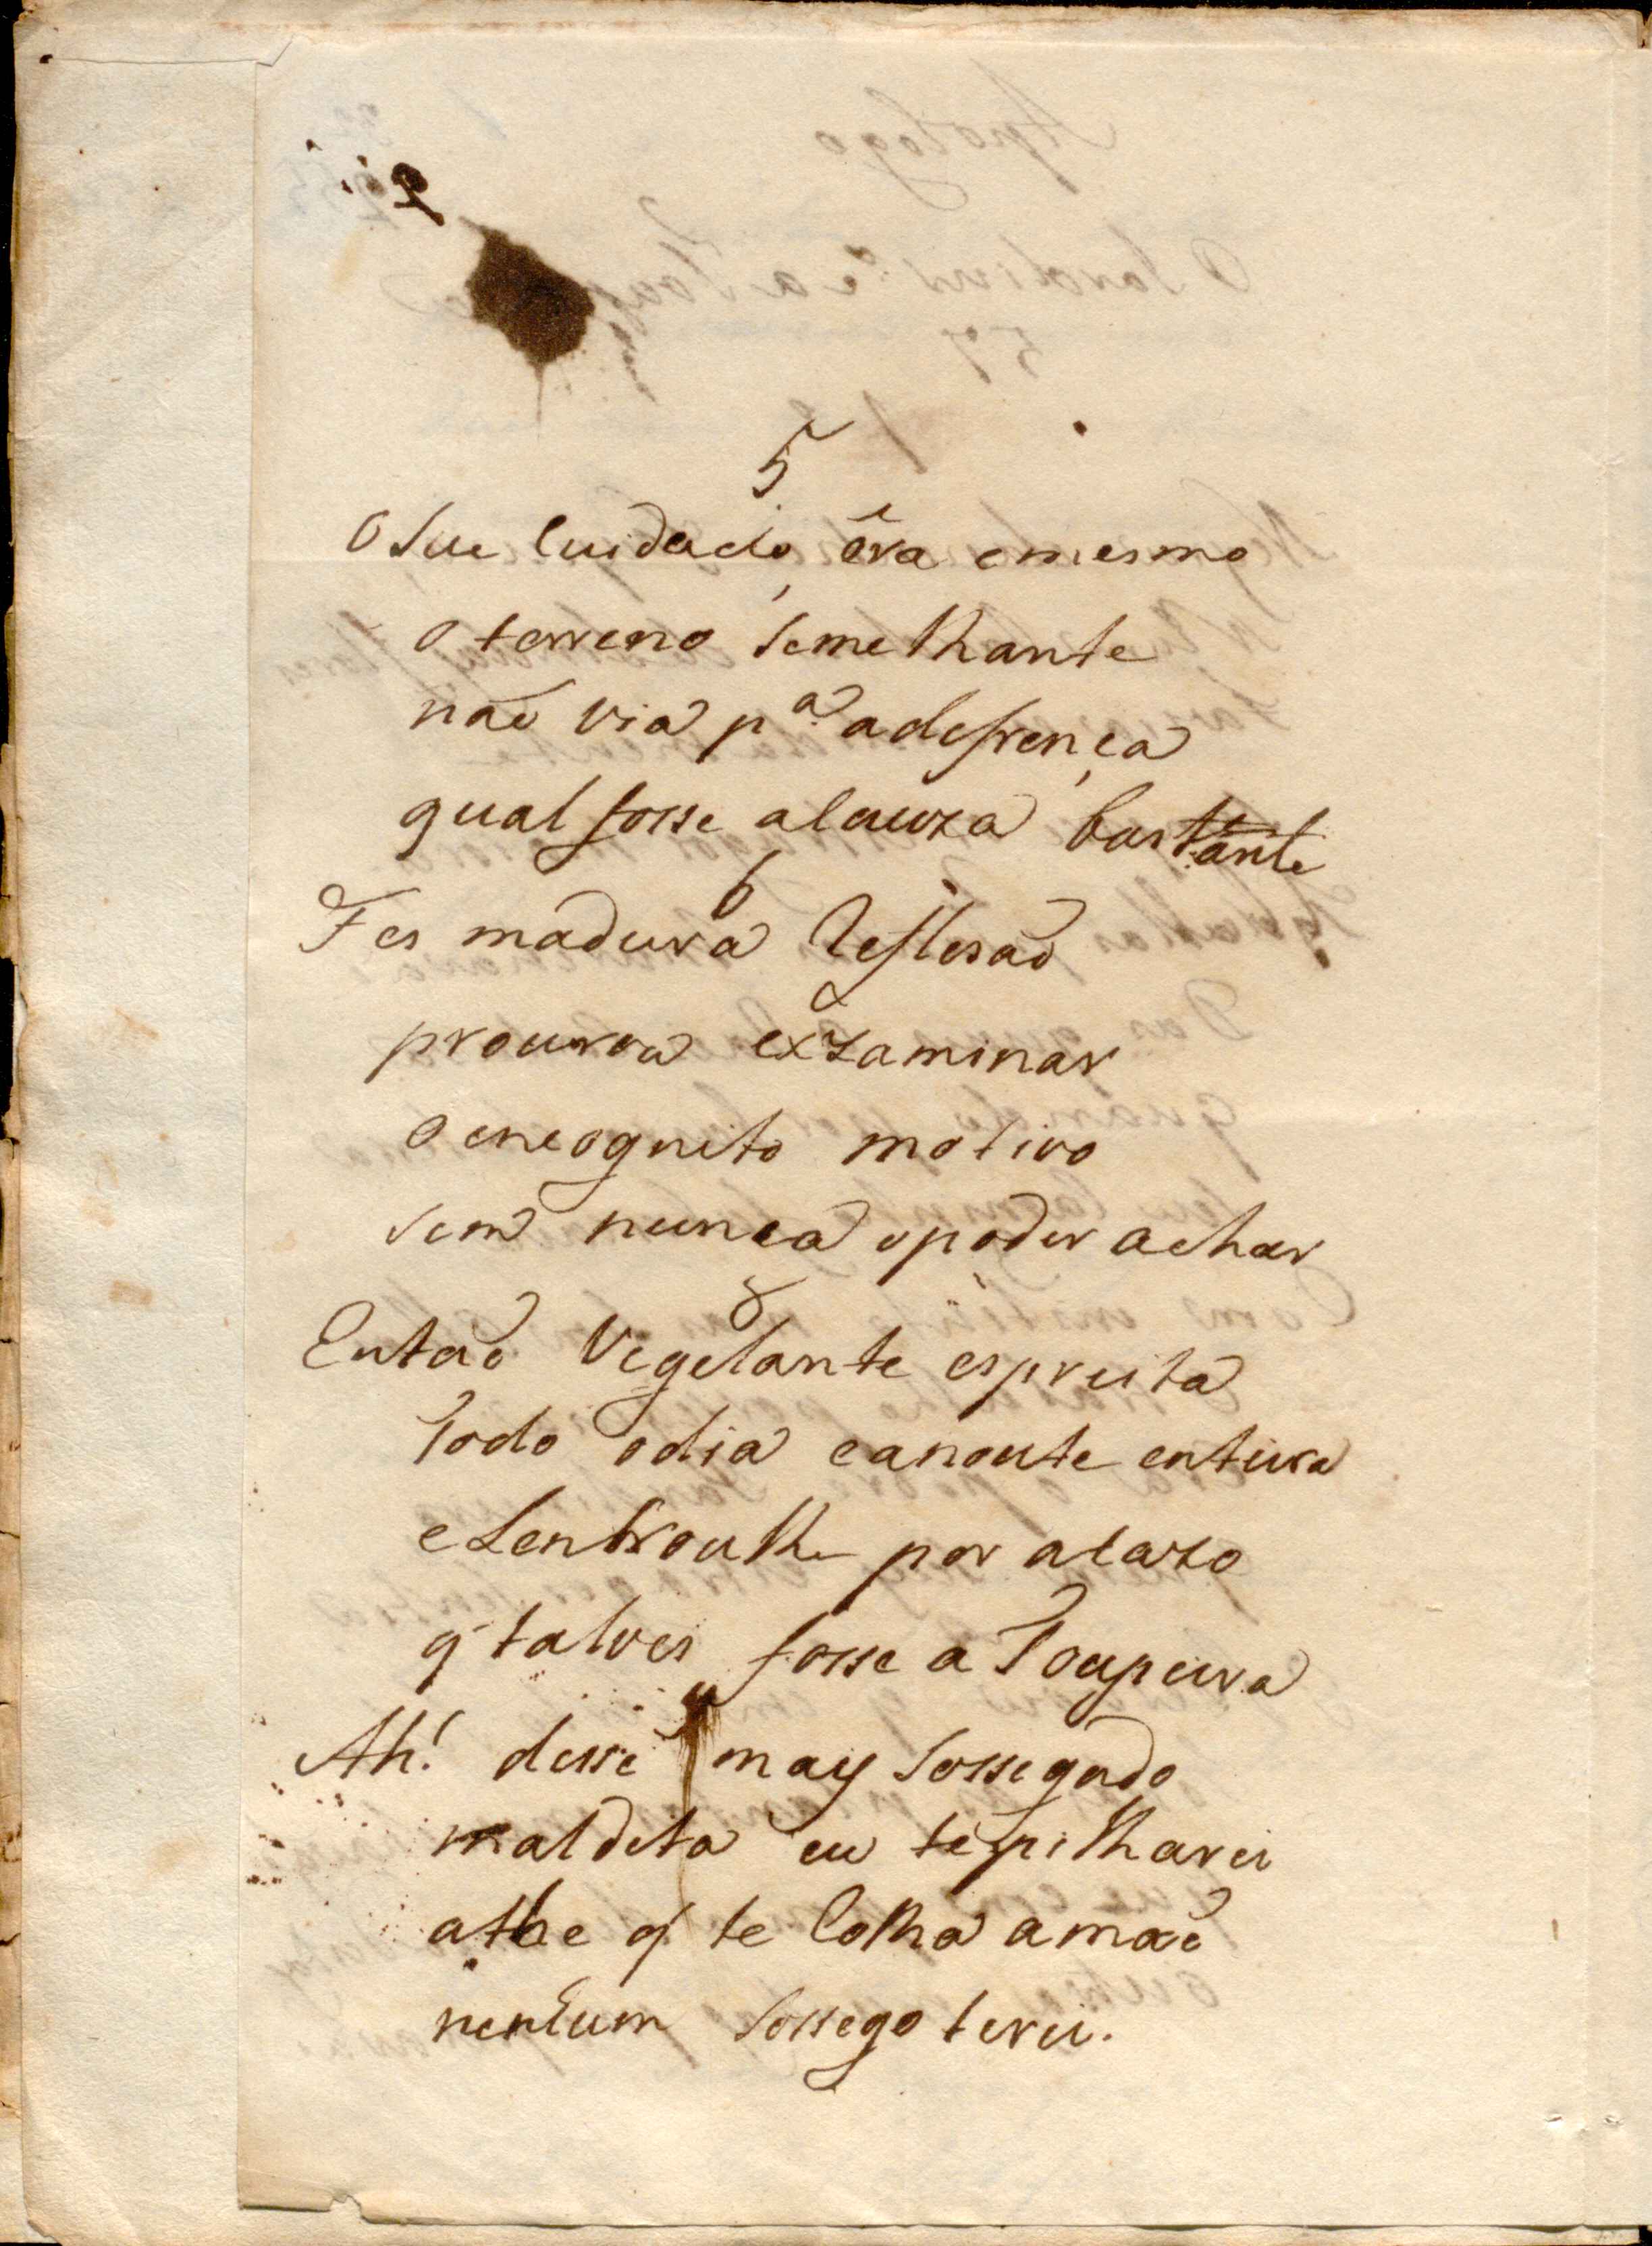 5
O Seu Cuidado, êra omesmo
o terreno Semelhante
naõ via pª adefrença
qual fosse aCauza bastante
6
Fes madura Reflesaõ
procurou exzaminar
o encognito motivo
sem nunca opoder achar
Entaõ Vegelante espreita
Todo odia eanoute enteira
eLenbroulhe por acazo
q̃ talves fosse a Toupeira
Ah! desse may Sossegado
maldita eu te pilharei
athe q̃ te Colha amaõ
nenhum Sossego terei.